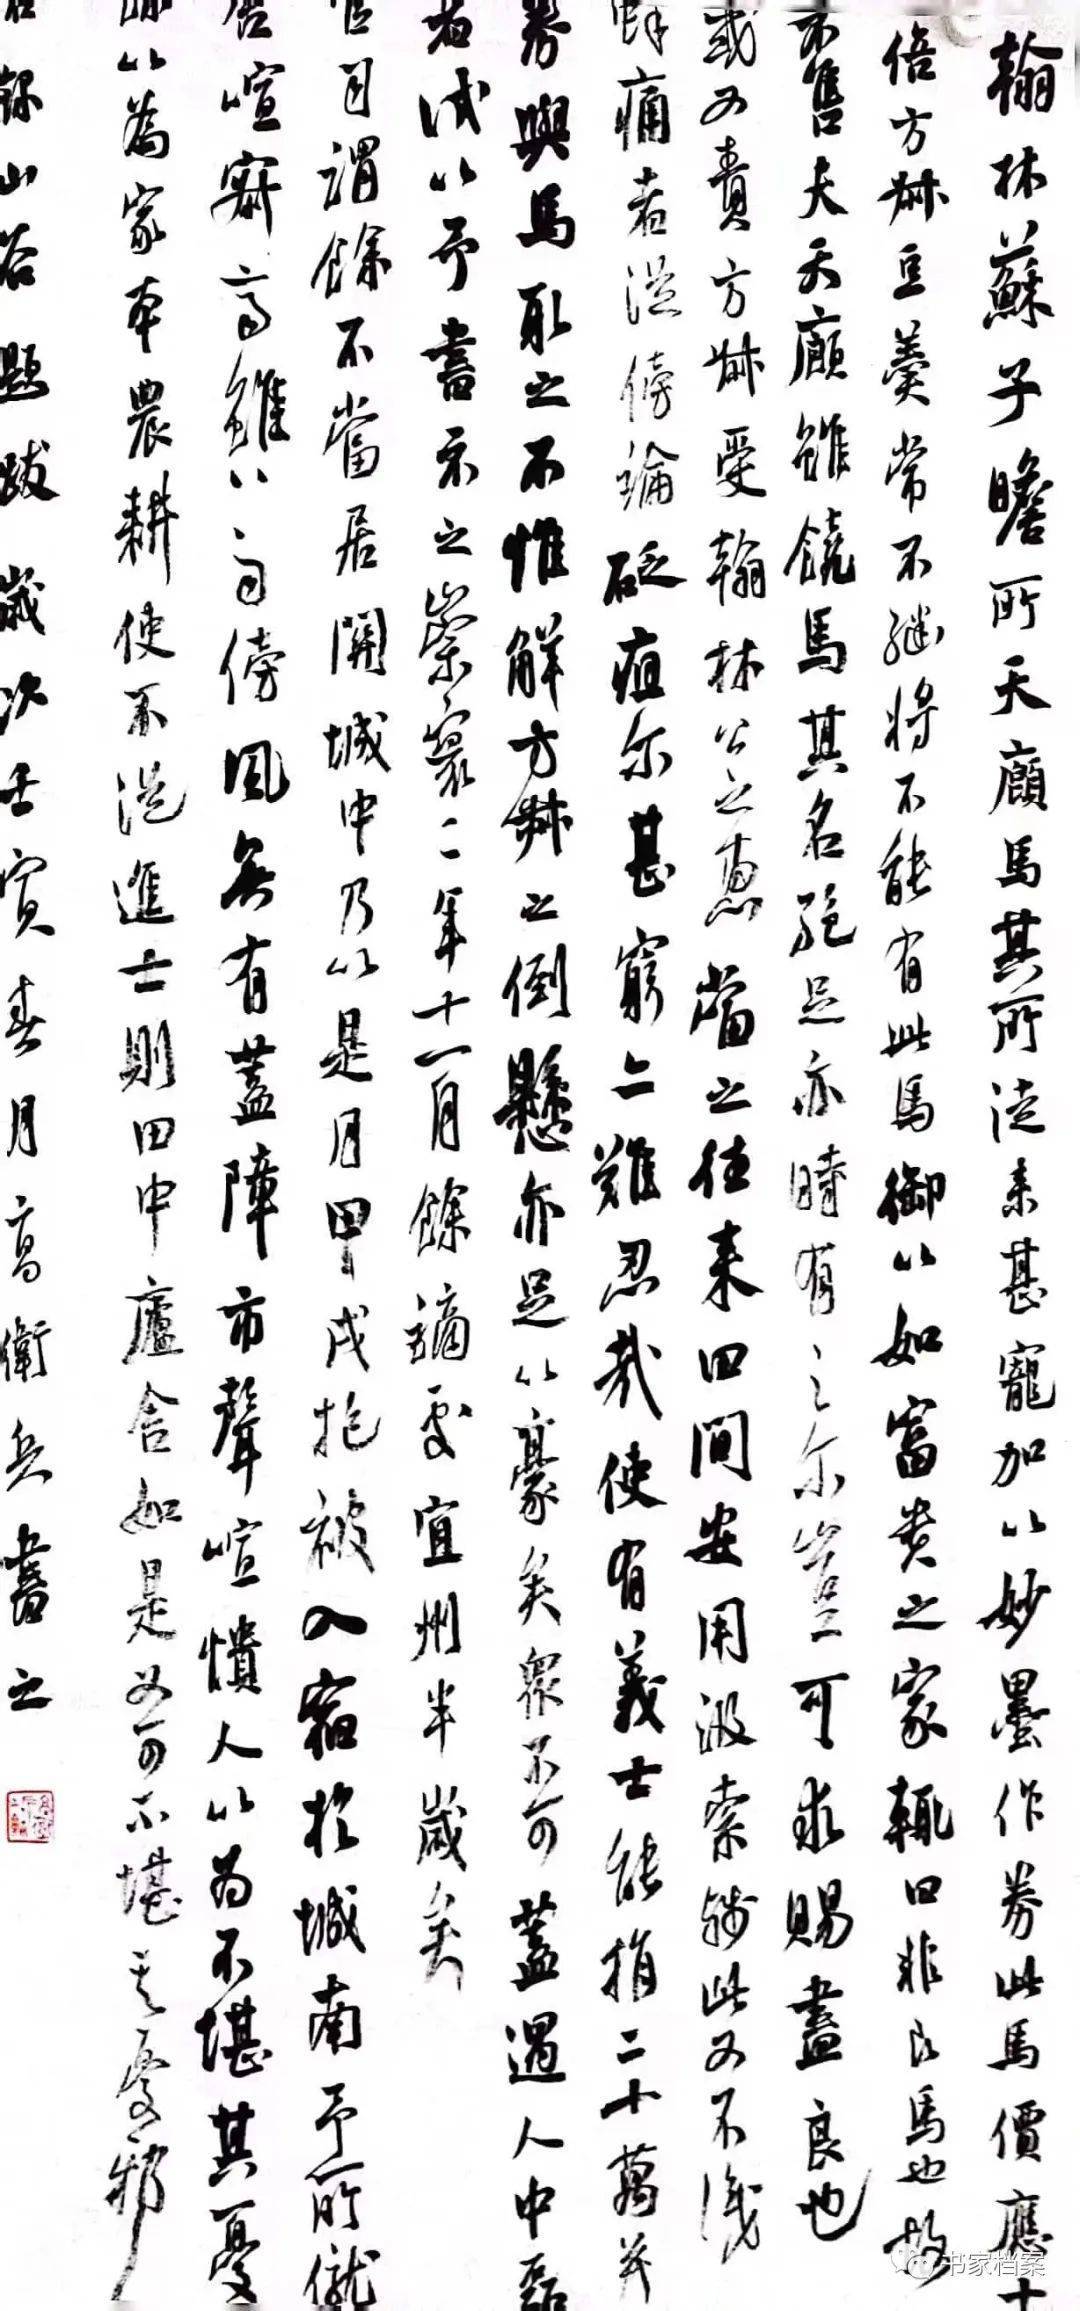 翰林蘇子瞻所天廄馬其所從来甚寵加以妙墨作券此馬價應十
倍方叔豆羹常不繼將不能有此馬御以如富贵之家輒曰非良馬也故
不售夫天廄雖饒馬其名絶足亦時有之尔豈可求賜盡良也
或又責方叔受翰林公之惠當之往来田間安用汲索錢此又不識
蚌痛者從傍論砭疽尔甚窮亦難忍哉使有義士能捐二十萬并
券與馬取之不惟解方叔之倒懸亦足以豪矣眾不可蓋遇人中磊
者試以予書示之崇寧二年十一月餘謫處宜州半歲矣
官司謂餘不當居關城中乃以是月甲戌抱被入宿於城南予所僦
舍喧寂齋雖上雨傍風無有蓋障市聲喧憒人以為不堪其憂
余以為家本農耕使不從進士則田中廬舍如是又可不堪其憂邪
右録山谷題跋 歲次壬寅春月高衛兵書之
书家档案